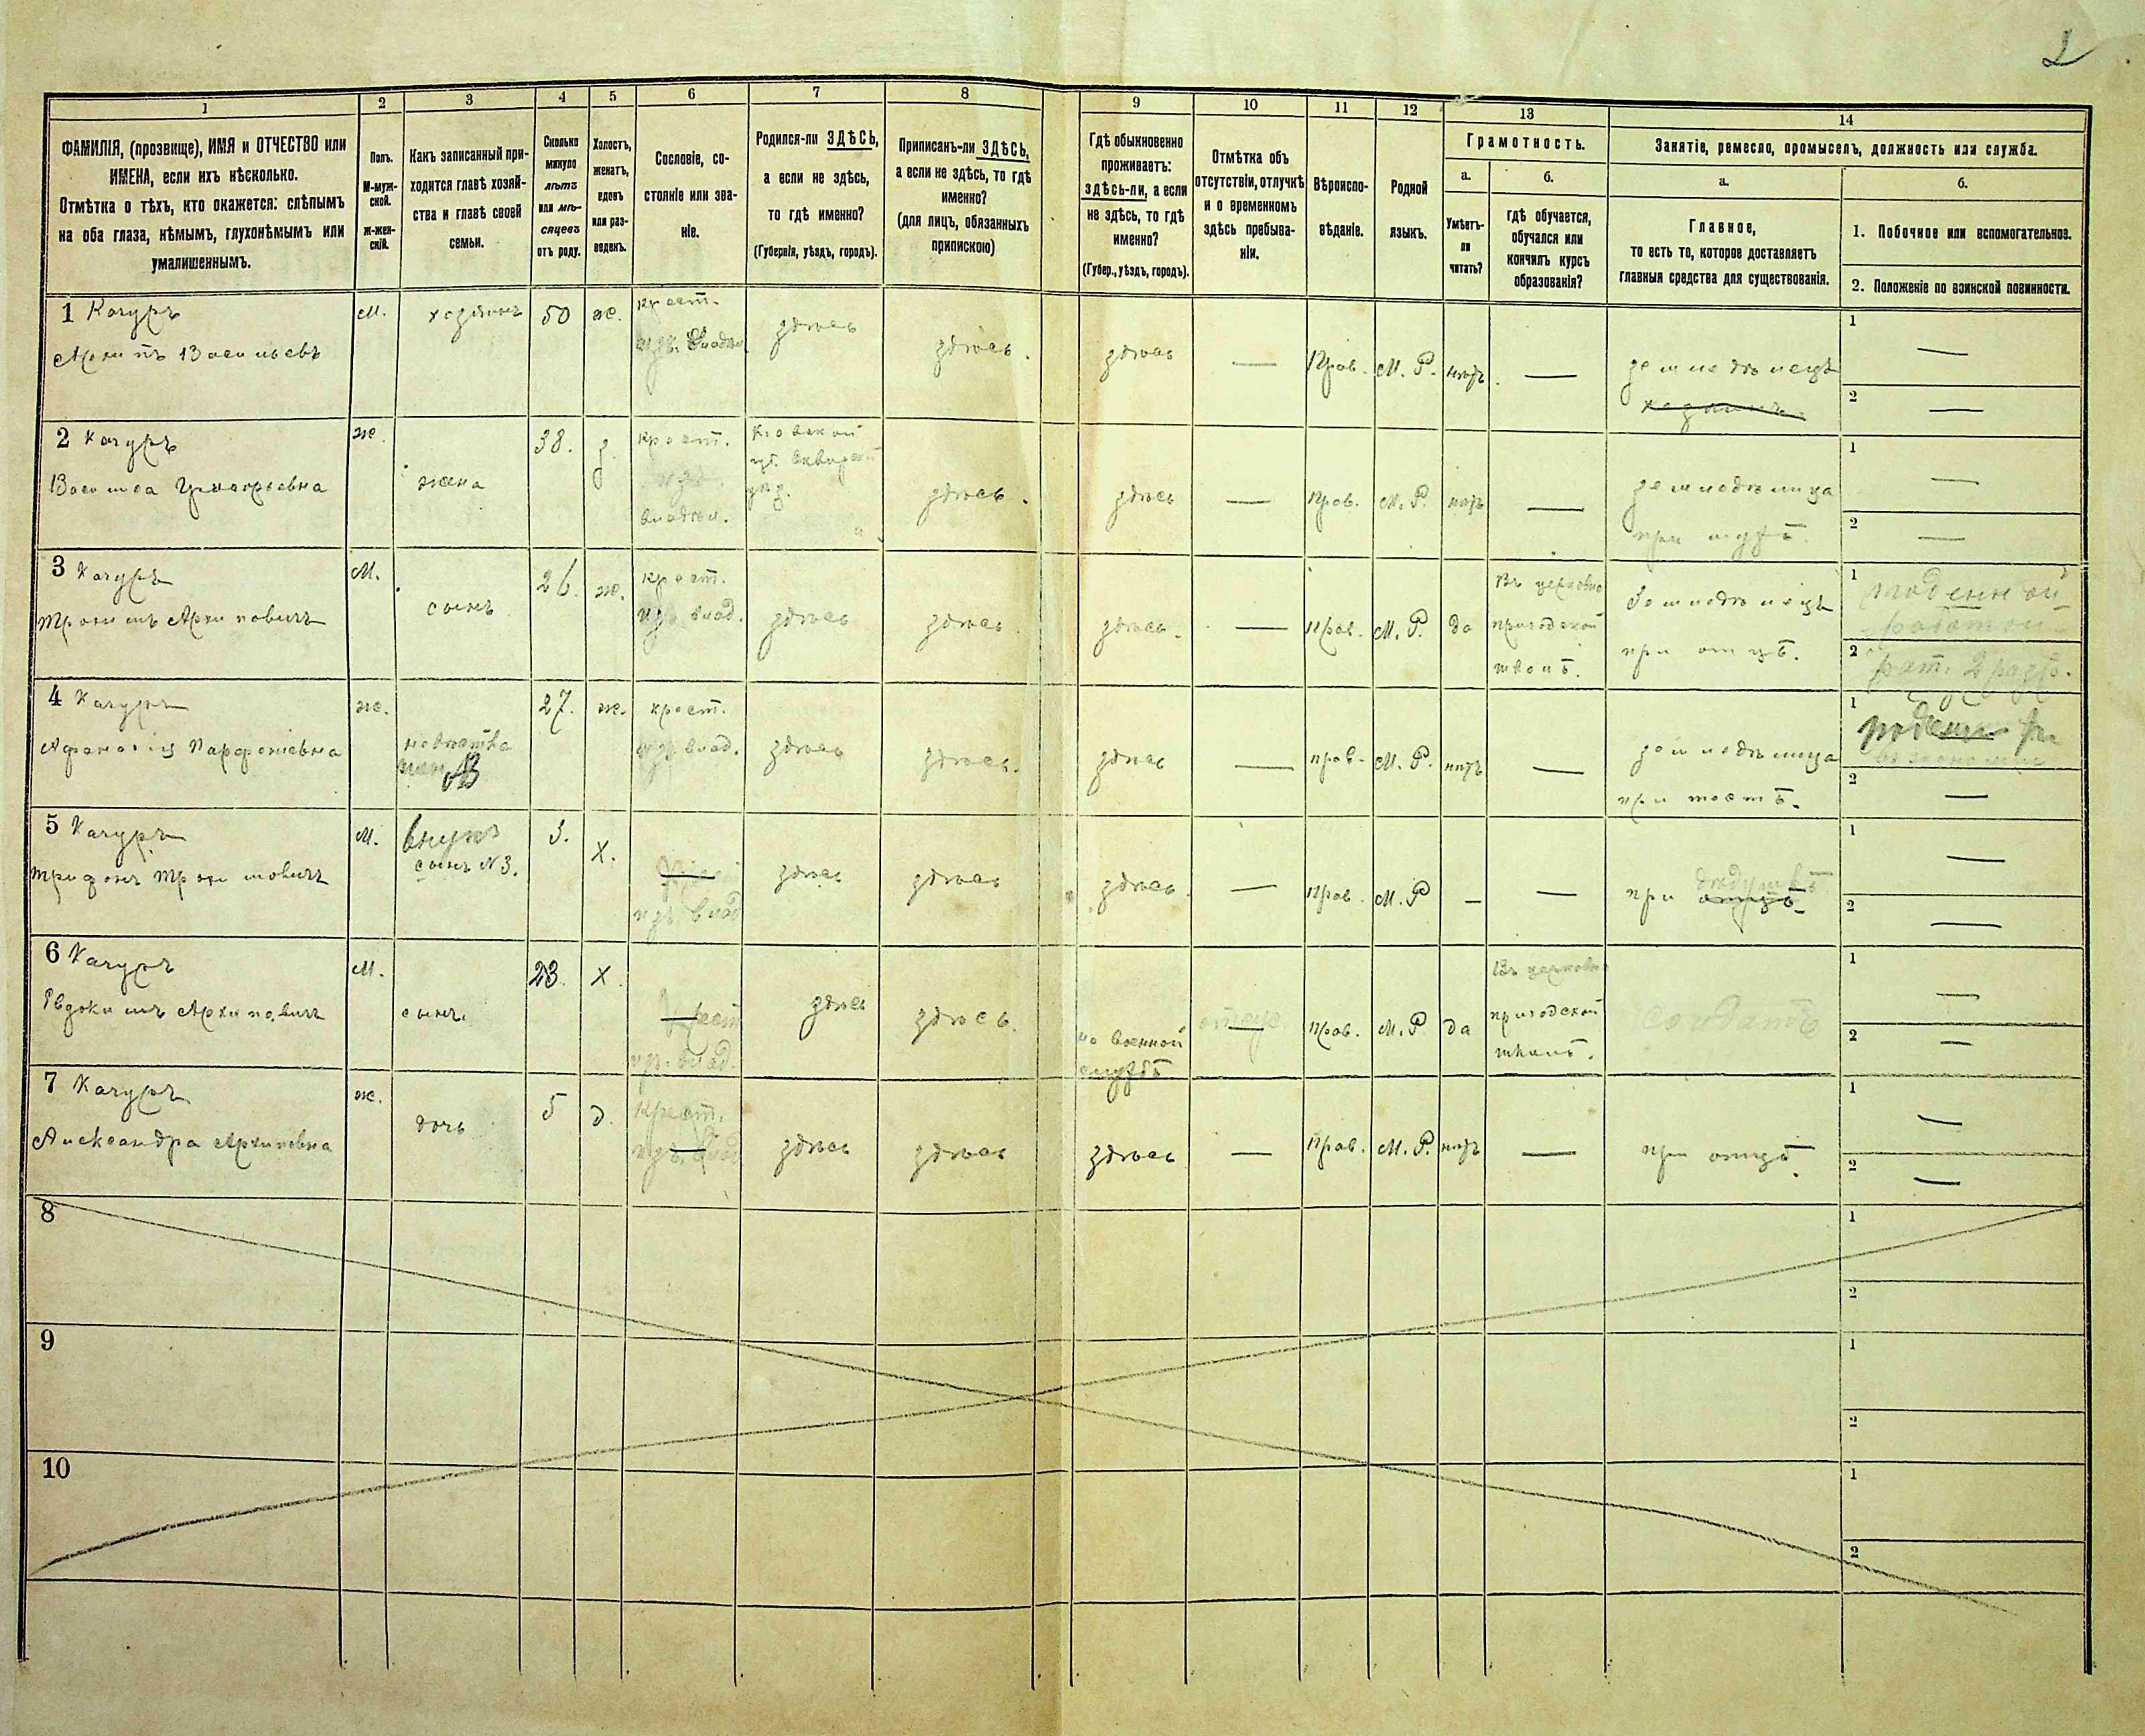 2
1
2
3
4
5
6
7
8
9
10
11
12
13
14
ФАМИЛІЯ, (прозвище), ИМЯ и ОТЧЕСТВО или
ИМЕНА, если ихъ нѣсколько.
Отмѣтка о тѣхъ, кто окажется: слѣпымъ
на оба глаза, нѣмымъ, глухонѣмымъ или
умалишеннымъ.
Полъ.
М-муж-
ской.
Ж-жен-
скій.
Какъ записанный при-
ходится главѣ хозяй-
ства и главѣ своей
семьи.
Сколько
минуло
лѣтъ
или мѣ-
сяцевъ
отъ роду.
Холостъ,
женатъ,
вдовъ
или раз-
веденъ.
Сословіе, со-
стояніе или зва-
ніе.
Родился-ли ЗДѢСЬ,
а если не здѣсь,
то гдѣ именно?
(Губернія, уѣздъ, городъ).
Приписанъ-ли ЗДѢСЬ,
а если не здѣсь, то гдѣ
именно?
(для лицъ, обязанныхъ
припискою)
Гдѣ обыкновенно
проживаетъ:
здѣсь-ли, а если
не здѣсь, то гдѣ
именно?
(Губер., уѣздъ, городъ).
Отмѣтка объ
отсутствіи, отлучкѣ
и о временномъ
здѣсь пребыва-
ніи.
Вѣроиспо-
вѣданіе.
Родной
языкъ.
Грамотность.
а.
Умѣетъ-
ли
читать?
б.
гдѣ обучается,
обучался или
кончилъ курсъ
образованія?
Занятіе, ремесло, промыселъ, должность или служба.
а.
Главное,
то есть то, которое доставляетъ
главныя средства для существованія.
б.
1. Побочное или вспомогательное.
2. Положеніе по воинской повинности.
1 Качуръ
Архипъ Васильевъ
М.
хозяинъ
50
ж.
крест.
здѣсь
здѣсь.
здѣсь
—
Прав.
М. Р.
нѣтъ
—
земледѣлецъ
хозяинъ
1 —
2 —
2 Качуръ
ж.
жена
38.
з.
крест.
владѣл.
Кіевской
губ. Сквирской
уѣз.
здѣсь.
здѣсь
—
прав.
М. Р.
нѣтъ
—
земледѣлица
при мужѣ.
1 —
2 —
3 Качуръ
Трохимъ Архиповичъ
М.
сынъ
26.
ж.
крест.
влад.
здѣсь
здѣсь
здѣсь.
—
прав.
М. Р.
да
Въ церковно
приходской
школѣ.
Земледѣлецъ
при отцѣ.
1 поденной
работой
2 рат. 2 разр.
4 Качуръ
Афанасія Парфеніевна
ж.
невѣстка
27.
ж.
крест.
влад.
здѣсь
здѣсь.
здѣсь
—
прав.
М. Р.
нѣтъ
—
земледѣлица
при тестѣ.
1
2 —
5 Качуръ
Трифонъ Трохимовичъ
М.
внукъ
сынъ N 3.
3.
Х.
влад
здѣсь
здѣсь
здѣсь.
—
Прав.
М. Р
—
—
при дѣдушкѣ
отцѣ
1 —
2 —
6 Качуръ
Евдокимъ Архиповичъ
М.
сынъ.
23.
х
крест
влад.
здѣсь
здѣсь.
на военной
службѣ
—
прав.
М. Р
да
Въ церковно
приходской
школѣ.
солдатъ
1 —
2 —
7 Качуръ
Александра Архиповна
ж.
дочь
5
д.
Крест.
здѣсь
здѣсь
здѣсь
—
Прав.
М. Р.
нѣтъ
—
при отцѣ.
1 —
2 —
8
1
2
9
1
2
10
1
2